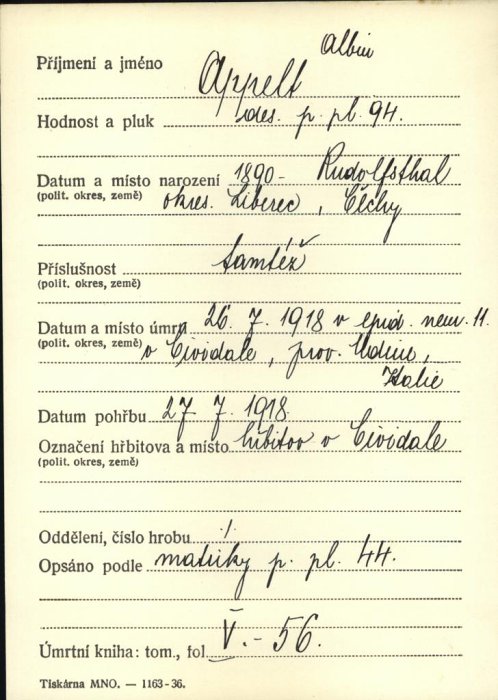 Albin
Příjmení a jméno Appelt
Hodnost a pluk des. p. pl. 94.
Datum a místo narození 1890 - Rudolfsthal
(polit. okres, země) okres. Liberec, Čěchy
Příslušnost tamtéž
(polit. okres, země)
Datum a místo úmrtí 26. 7. 1918 v epid. nem. 11.
(polit. okres, země) v Cividale, prov. Udine,
Italie
Datum pohřbu 27. 7. 1918.
Označení hřbitova a místo hřbitov v Cividale
(polit. okres, země)
Oddělení, číslo hrobu
Opsáno podle matriky p. pl. 44.
Úmrtní kniha: tom., fol. V. - 56.
Tiskárna MNO. — 1163-36.